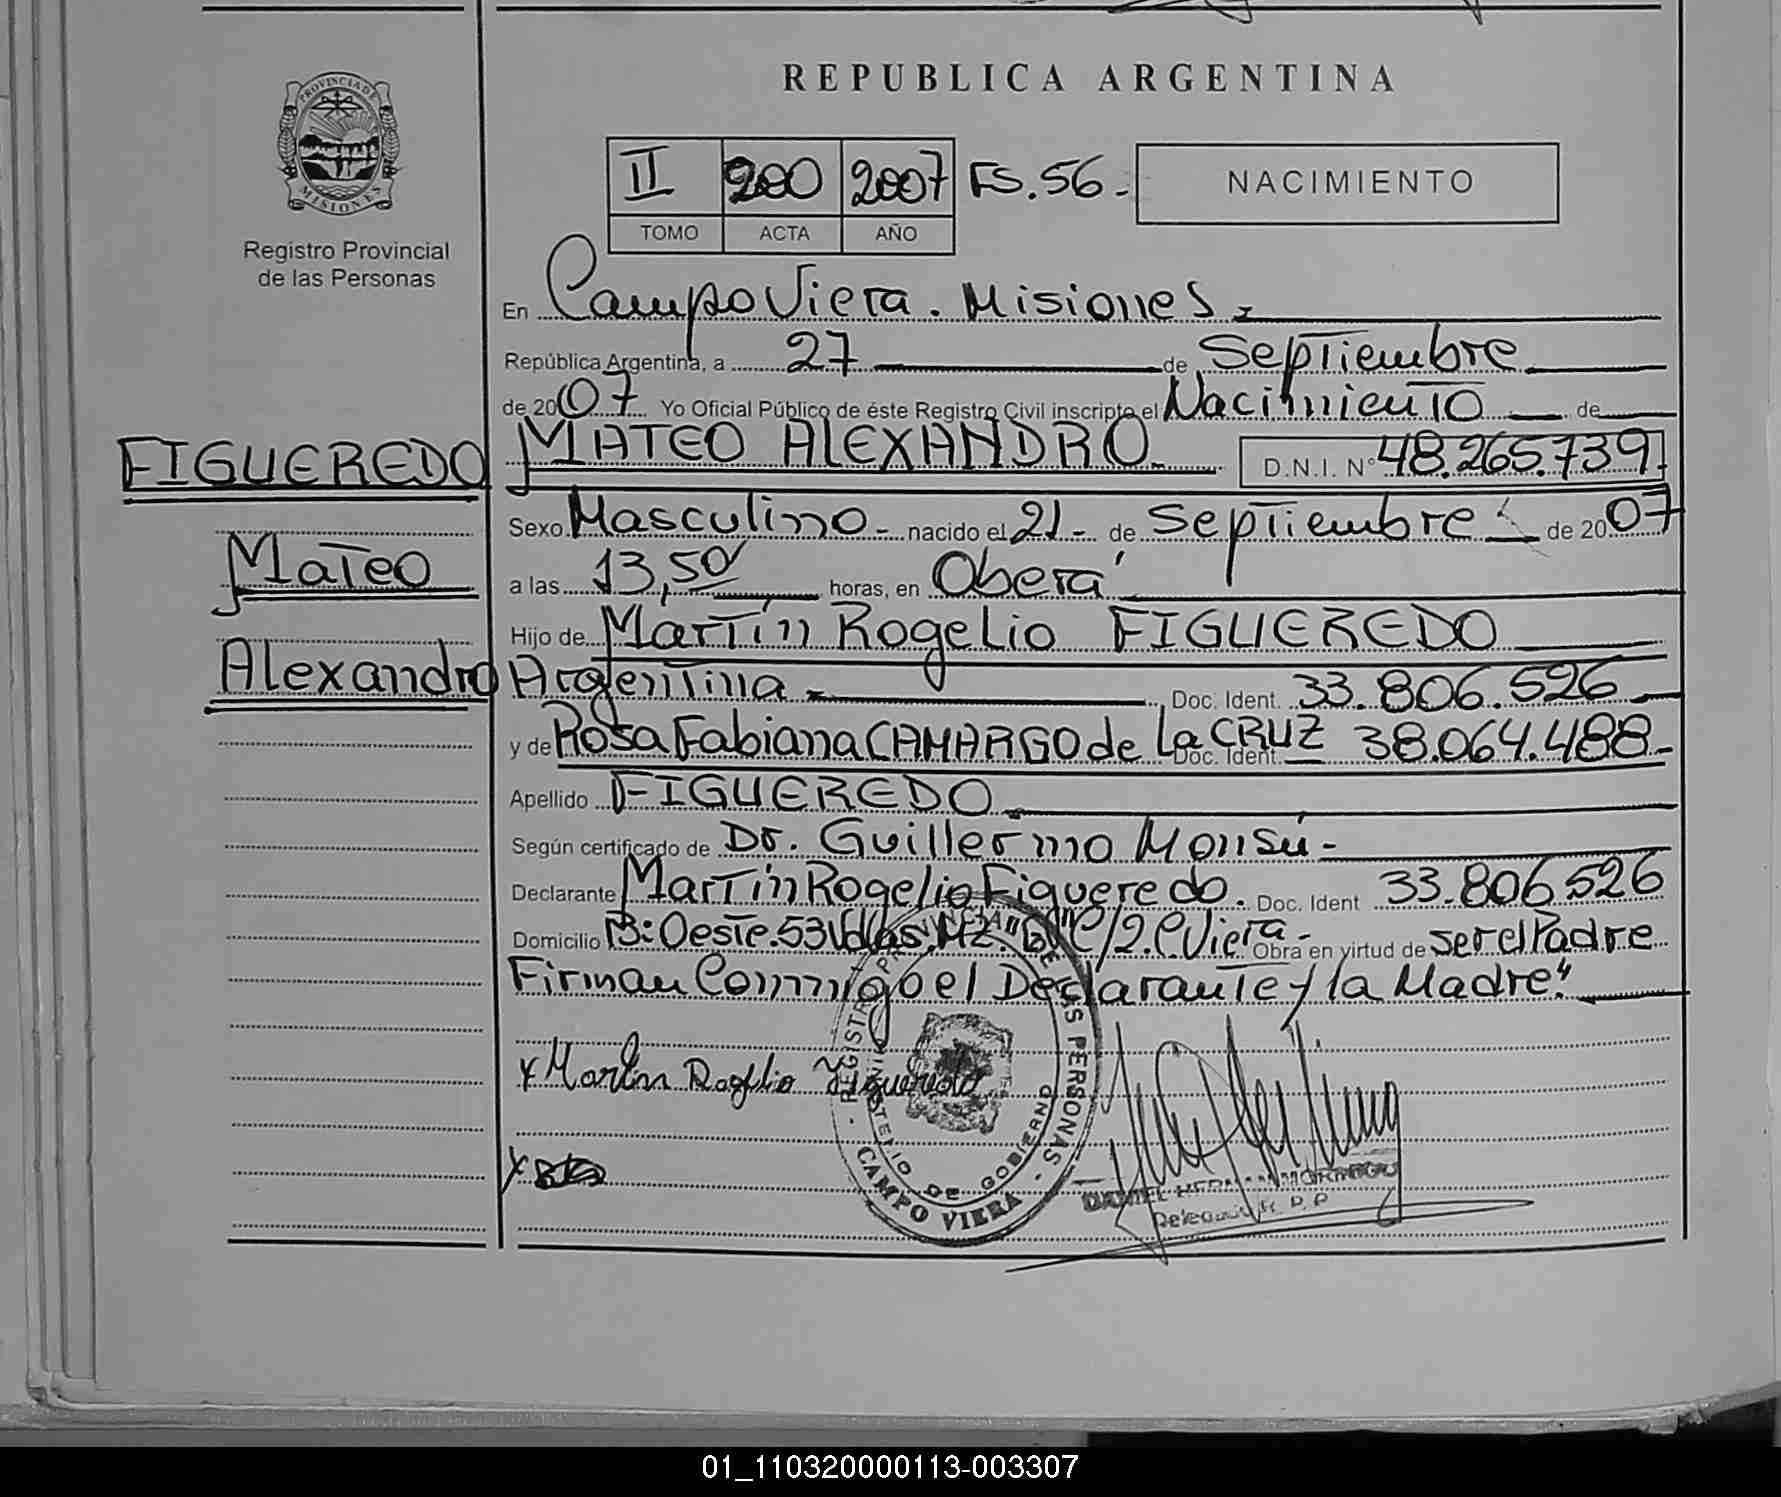 REPUBLICA ARGENTINA
PROVINCIA DE
MISIONES
Registro Provincial
de las Personas
II 200 2007 FS. 56.-
TOMO ACTA AÑO
NACIMIENTO
En Campo Viera. Misiones
República Argentina, a 27 de Septiembre
de 2007 Yo Oficial Público de éste Registro Civil inscripto el Nacimiento de
FIGUEREDO MATEO ALEXANDRO D.N.I. N° 48.265.739
Sexo Masculino - nacido el 21 - de Septiembre de 2007
Mateo
a las 13,50 horas, en Oberá
Hijo de Martín Rogelio FIGUEREDO
Alexandro
Argentina Doc. Ident. 33.806.526
y de Rosa Fabiana CAMARGO de La CRUZ Doc. Ident. 38.064.488-
Apellido FIGUEREDO
Según certificado de Dr. Guillermo Monsú-
Declarante Martín Rogelio Figueredo. Doc. Ident 33.806.526
Domicilio B: Oeste. 53 Vdas. Mz. C/2. C Viera- Obra en virtud de ser el Padre
Firman Conmigo el Declarante y la Madre."
x Martin Rogelio Figueredo
REGISTRO PROVINCIAL DE LAS PERSONAS
MINISTERIO DE GOBIERNO
CAMPO VIERA
01_110320000113-003307